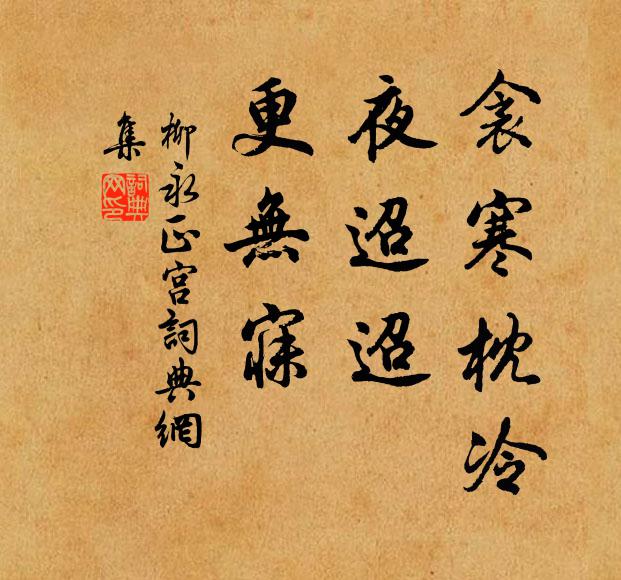 衾寒枕冷
夜迢迢
更無寐
柳永正宫詞典網
集
詞典網印